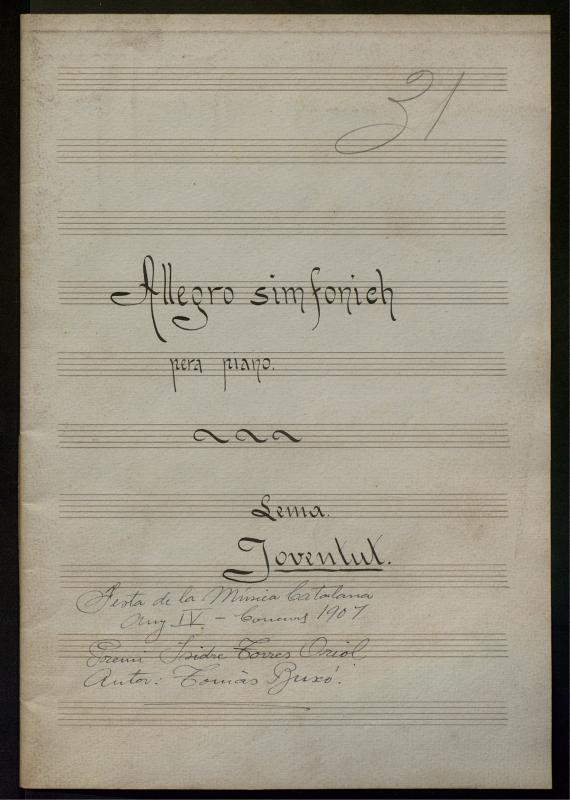 31
Allegro simfonich
pera piano.
Lema.
Joventut.
Festa de la Música Catalana
Any IV. - Concurs 1907
Premi Isidre Torres Oriol
Autor: Tomàs Buxó.